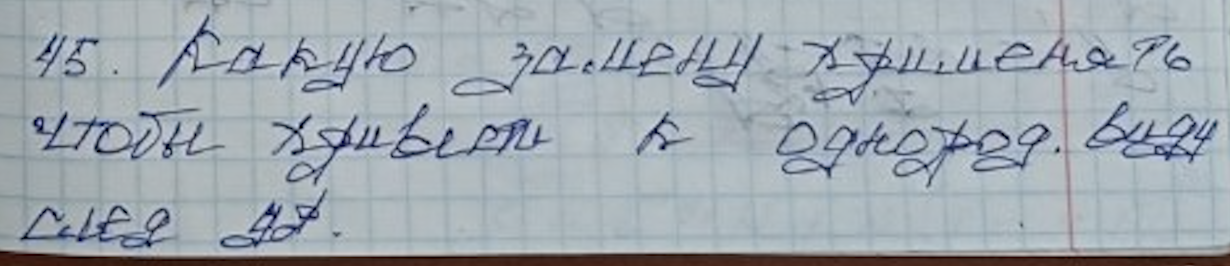 45. Какую замену применять
чтобы привести к однород. виду
след ур.